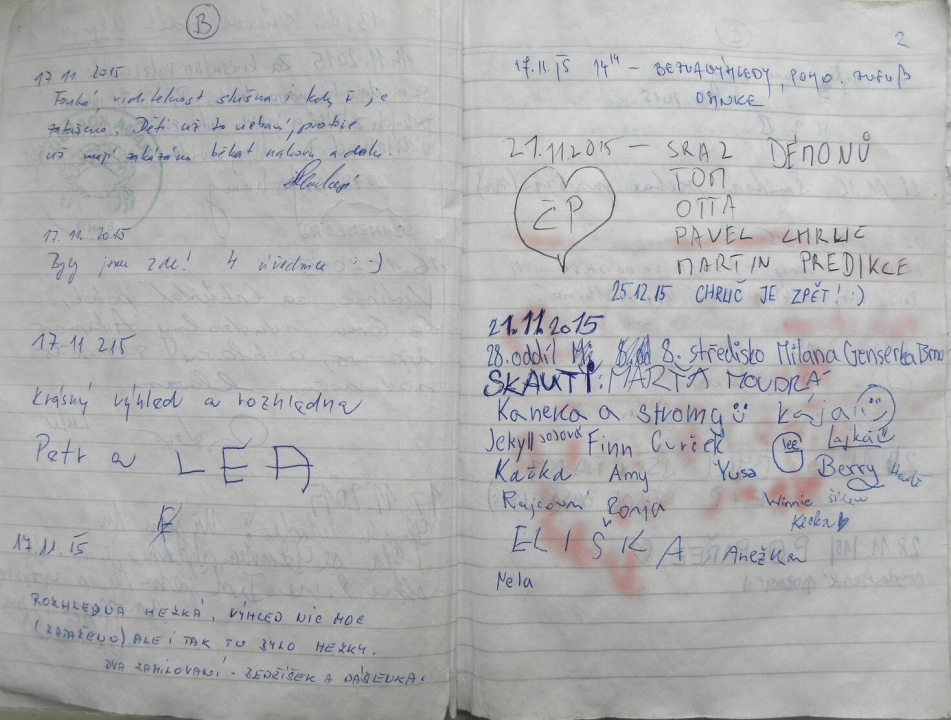 B
17.11 2015
Fouká, viditelnost slušná i když je
zataženo. Děti už to nebaví, protože
už mají zakázáno běhat nahoru a dolu.
17.11 2015
Byly jsme zde! 4 úřednice :-)
17.11 215
krásný výhled a rozhledna
Petr a LEA
17.11.15
ROZHLEDNA HEZKÁ, VÝHLED NIC MOC
(ZATAŽENO) ALE I TAK TO BYLO HEZKÝ.
DVA ZAMILOVANÍ - BEDŘÍŠEK A DÁŠENKA.
2
17.11.15 14¹⁴ -
21.11.2015 - SRAZ DÉMONŮ
TOM
ČP
OTTA
PAVEL CHRLIČ
MARTIN PREDIKCE
25.12.15 CHRLIČ JE ZPĚT! :)
21.11.2015
28. oddíl 8. středisko Milana Genserka Brno
SKAUTI: MÁŘŤA MOUDRÁ
Kaneka a stromy kája
Jekyll sojová Finn Cvrček lee Lajkáč
Kačka Amy Yusa Berry
Rajcovní Ronja Winnie
Kecka
ELIŠKA Anežka
Nela